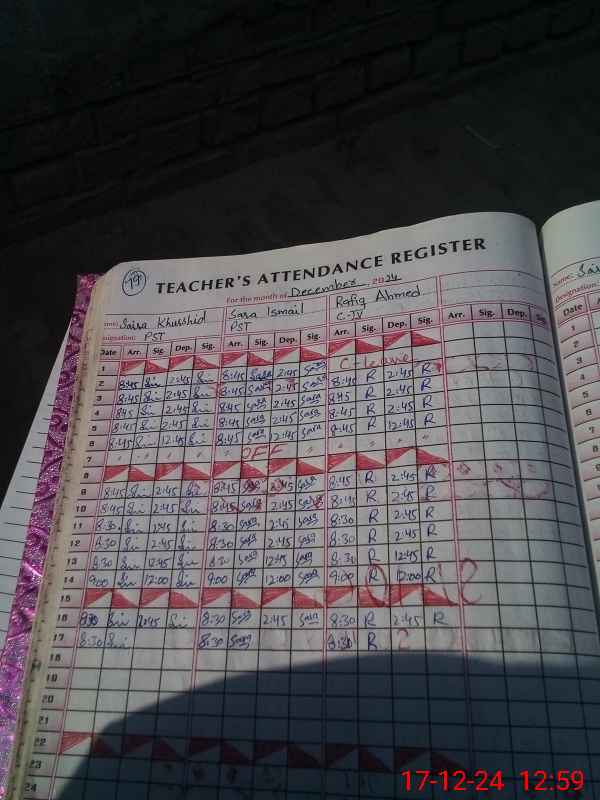 79
TEACHER'S ATTENDANCE REGISTER
For the month of December 2024
Name: Saira Khurshid Sara Ismail Rafiq Ahmed
Designation: PST PST C-TV
Date Arr. Sig. Dep. Sig. Arr. Sig. Dep. Sig. Arr. Sig. Dep. Sig. Arr. Sig. Dep. Sig.
1
2 8:45 2:45 8:45 Sara 2:45 Sara C-leave
3 8:45 2:45 8:45 Sara 2:45 Sara 8:45 R 2:45 R
4 8:45 2:45 8:45 Sara 2:45 Sara 8:45 R 2:45 R
5 8:45 2:45 8:45 Sara 2:45 Sara 8:45 R 2:45 R
6 8:45 12:45 8:45 Sara 12:45 Sara 8:45 R 12:45 R
7 OFF
8
9 8:45 2:45 8:45 Sara 2:45 8:45 R 2:45 R
10 8:45 2:45 8:45 Sara 2:45 Sara 8:45 R 2:45 R
11 8:30 2:45 8:30 Sara 2:45 Sara 8:30 R 2:45 R
12 8:30 2:45 8:30 Sara 2:45 Sara 8:30 R 2:45 R
13 8:30 12:45 8:30 Sara 12:45 Sara 8:30 R 12:45 R
14 9:00 12:00 9:00 Sara 12:00 Sara 9:00 R 12:00 R
15
16 8:30 2:45 8:30 Sara 2:45 Sara 8:30 R 2:45 R
17 8:30 8:30 Sara 8:30 R
18
19
20
21
22
23
24
Name: Sai
Designation:
Date Arr
1
2
3
4
5
6
7
8
9
10
17-12-24 12:59